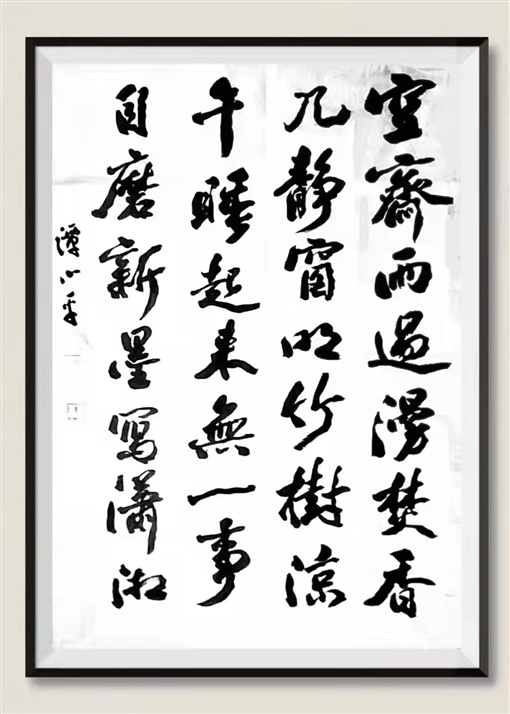 空齋雨過漫焚香
几靜窗明竹樹涼
午睡起來無一事
自磨新墨寫瀟湘